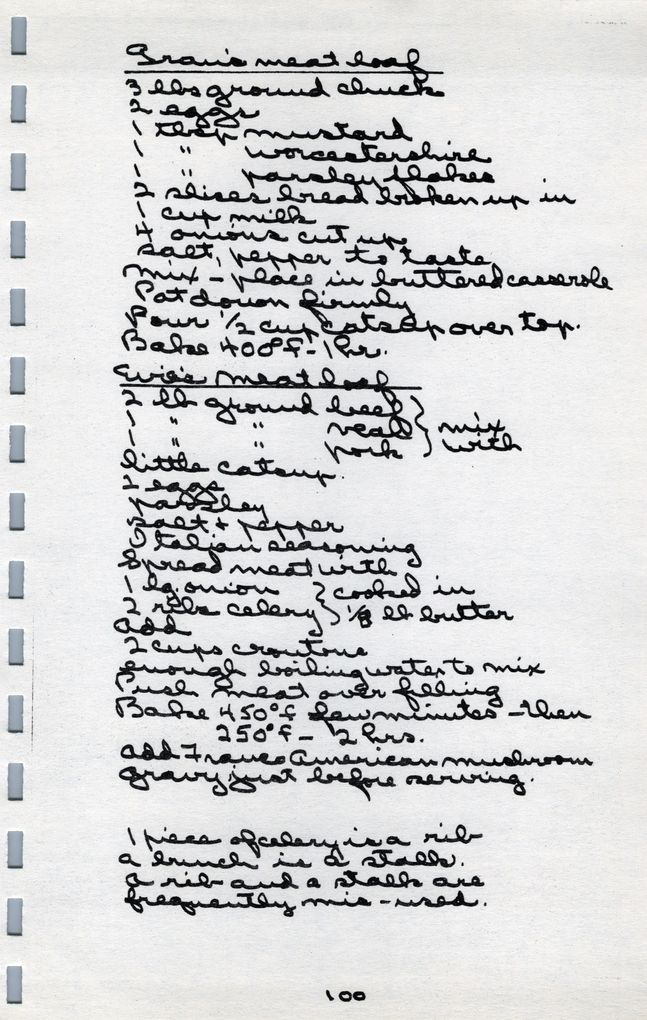 Gran's meat loaf
3 lbs ground chuck
2 eggs
1 tbsp mustard
1 " worcestershire
1 " parsley flakes
2 slices bread broken up in
1 cup milk
4 onions cut up
salt, pepper to taste
mix - place in buttered casserole
Pat down firmly
Pour 1/2 cup catsup over top.
Bake 400°F - 1 hr.
Evie's meat loaf
2 lb ground beef } mix
1 " " veal } with
1 " " pork
little catsup.
2 eggs
parsley
salt + pepper
Italian seasoning
Spread meat with
1 lg onion } cooked in
2 ribs celery } 1/8 lb butter
add
2 cups croutons
enough boiling water to mix
Push meat over filling
Bake 450°F few minutes - then
250°F - 2 hrs.
add Franco American mushroom
gravy just before serving.
1 piece of celery is a rib
a bunch is a stalk.
a rib and a stalk are
frequently mis-used.
100